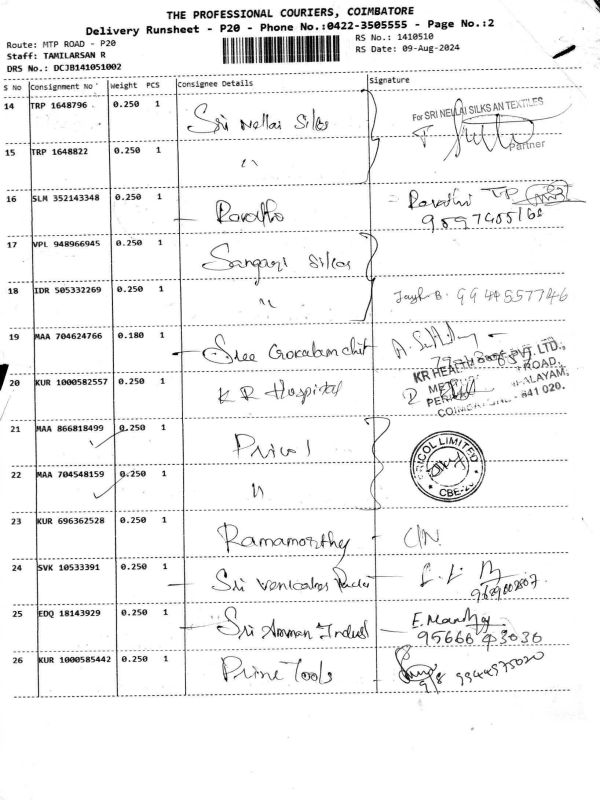 THE PROFESSIONAL COURIERS, COIMBATORE
Delivery Runsheet - P20 - Phone No.:0422-3505555 - Page No.:2
Route: MTP ROAD - P20
RS No.: 1410510
Staff: TAMILARSAN R
RS Date: 09-Aug-2024
DRS No.: DCJB141051002
S No Consignment No Weight PCS Consignee Details Signature
14 TRP 1648796 0.250 1 Sri Nellai Silks
For SRI NELLAI SILKS AN TEXTILES
Partner
15 TRP 1648822 0.250 1 "
16 SLM 352143348 0.250 1
17 VPL 948966945 0.250 1 Silks
18 IDR 505332269 0.250 1 " 9944557746
19 MAA 704624766 0.180 1 Sree Gokulam chit
20 KUR 1000582557 0.250 1 K R Hospital
KR HEALTH PVT. LTD.,
ROAD,
COIMBATORE - 641 020.
21 MAA 866818499 0.250 1 Pricol
PRICOL LIMITED
CBE-20
22 MAA 704548159 0.250 1 "
23 KUR 696362528 0.250 1 Ramamorthy
24 SVK 10533391 0.250 1 Sri
25 EDQ 18143929 0.250 1 Sri Amman
95666 43030
26 KUR 1000585442 0.250 1 Prime Tools 9944975020
9/8